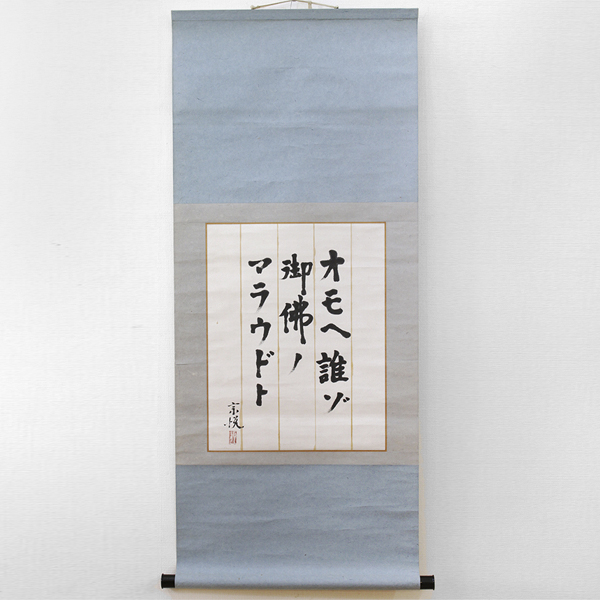 オモヘ誰ゾ
御佛ノ
マラウドト
宗悦